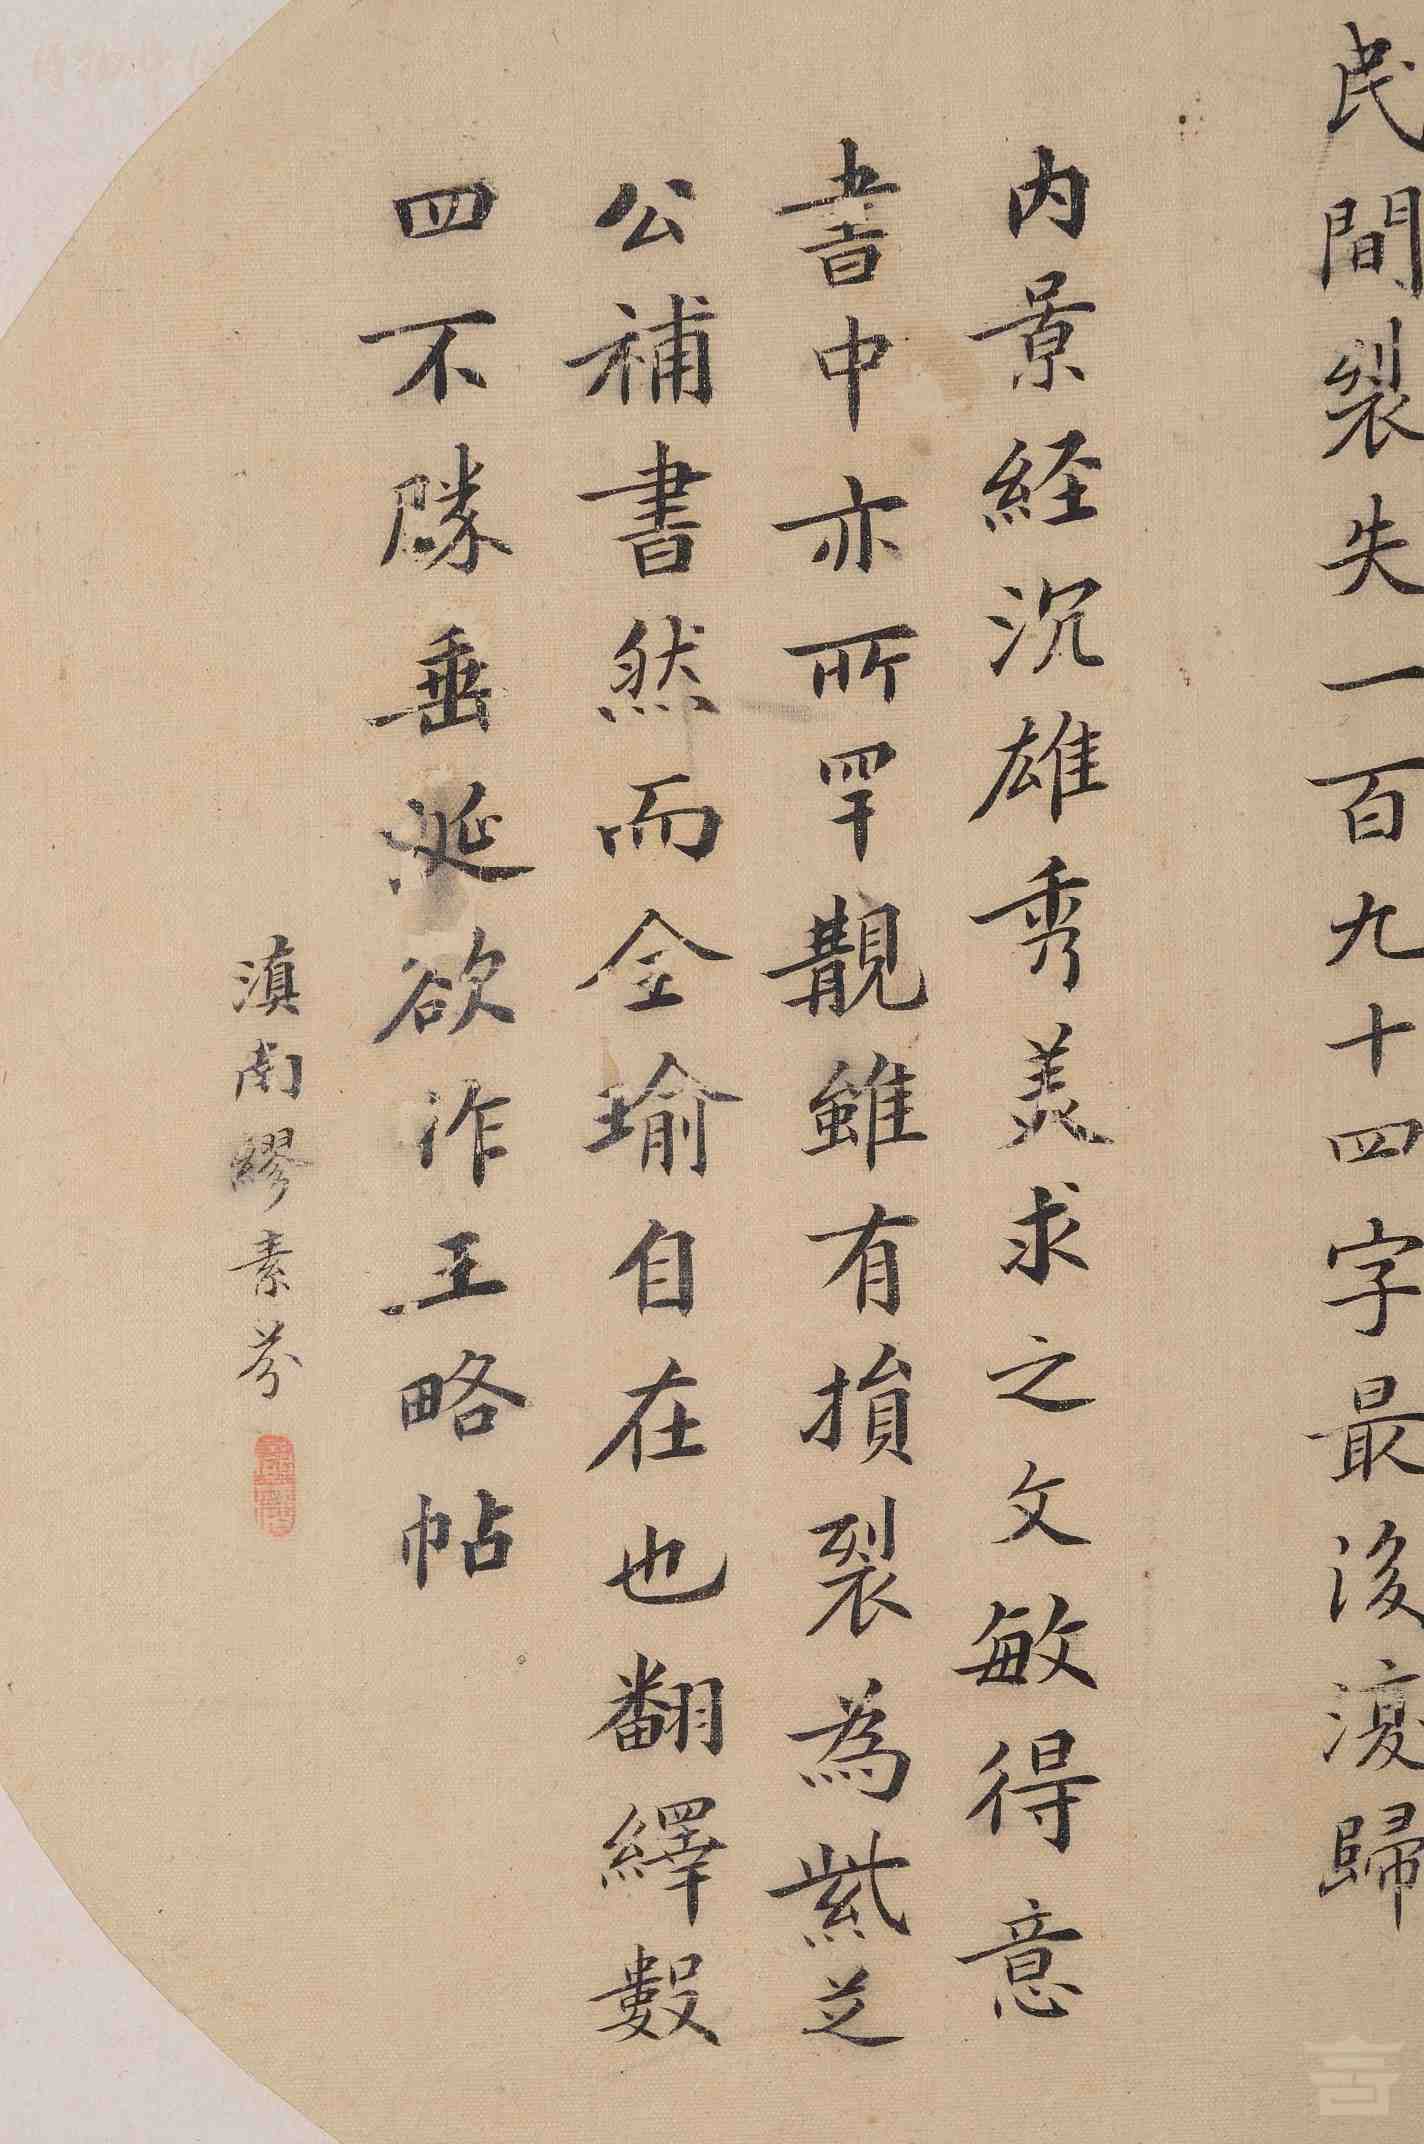 民間裂失一百九十四字最後復歸
内景経沉雄秀美求之文敏得意
書中亦所罕覯雖有損裂為紫芝
公補書然而金瑜自在也翻繹數
四不勝垂涎欲作王略帖
滇南繆素芬